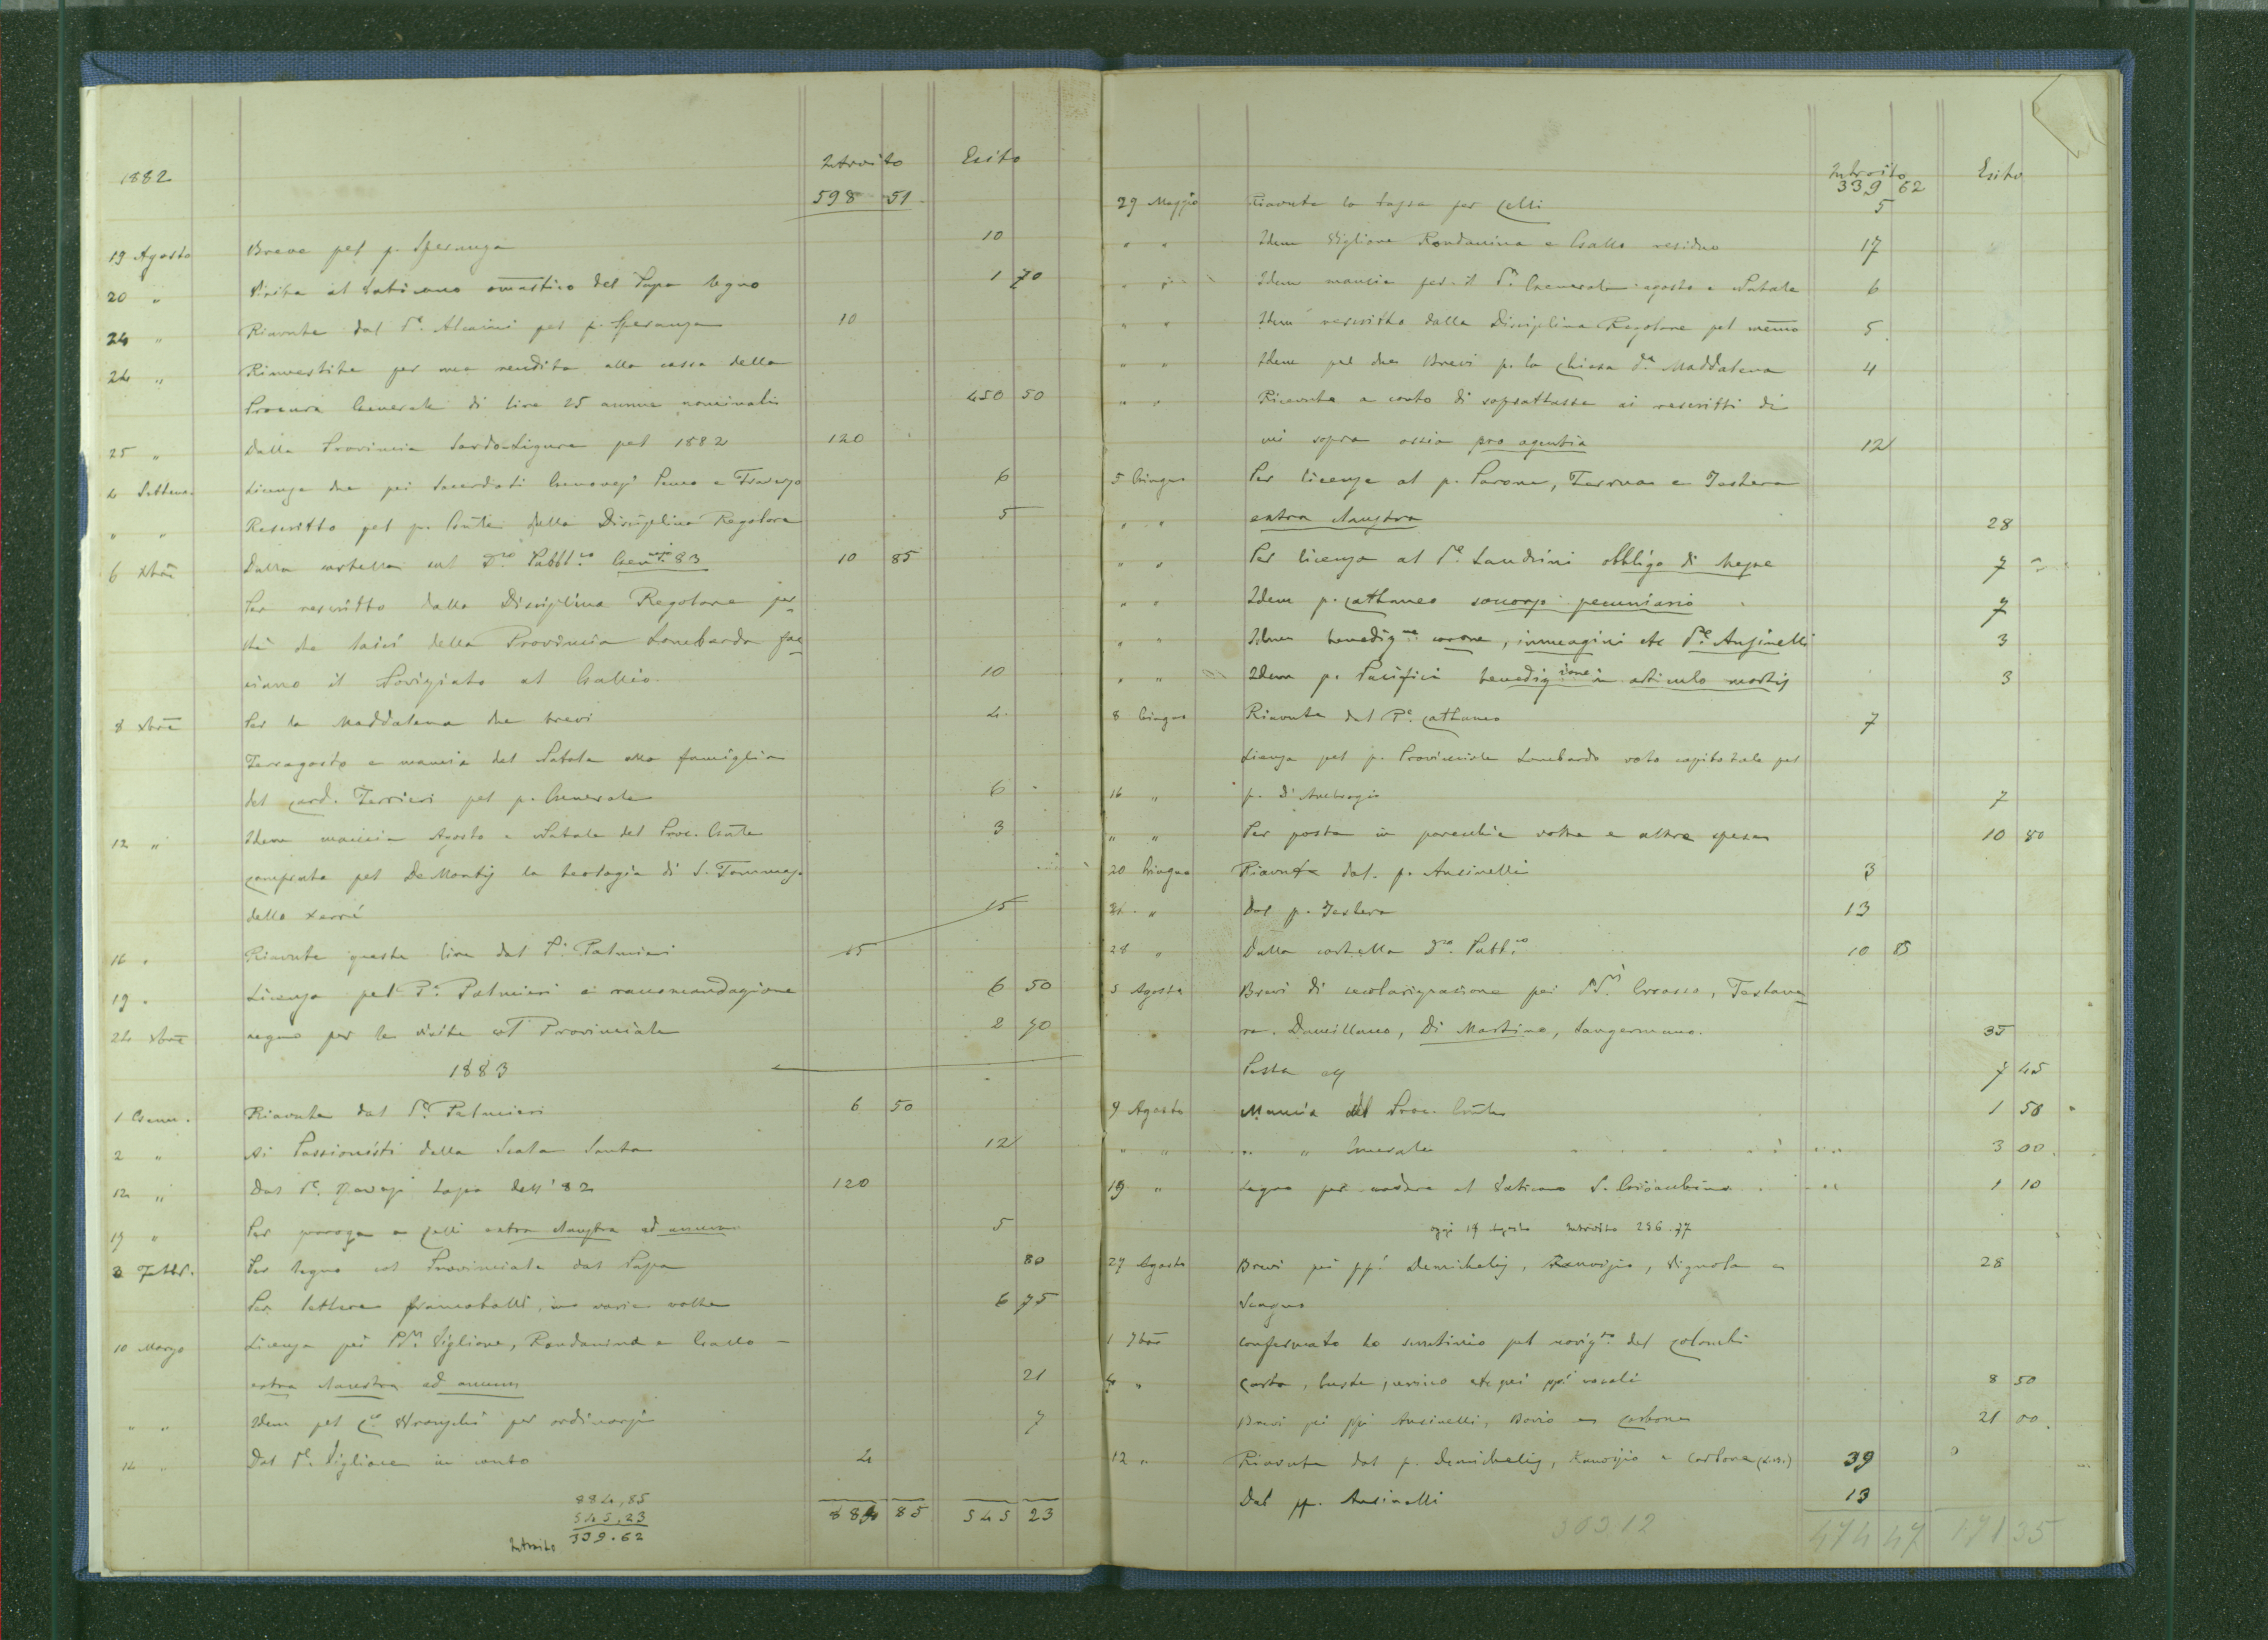 1882 Introito Esito
598 51
19 Agosto Breve pel p. Speranza 10
20 " Visita al Vaticano onomastico del Papa legno 1 70
24 " Riavute dal P.e Alcaini pel p. Speranza 10
24 " Rinvestite per una rendita alla cassa della
Procura Generale di lire 25 annue nominali 450 50
25 " Dalla Provincia Sardo-Ligure pel 1882 120
4 Settem. Licenze due pei Sacerdoti Genovesi e 6
" " Rescritto pel p. Conte della Disciplina Regolare 5
6 Xbre Dalla cartella sul D.to Pubbl.co 83 10 85
Per rescritto dalla Disciplina Regolare per
chè i laici della Provincia Lombarda fac
ciano il Noviziato al Gallio 10
8 Xbre Per la Maddalena due brevi 4
Ferragosto e mancia del Natale alla famiglia
del Card. Ferrieri pel p. Generale 6
12 " Idem mancia Agosto e Natale del Proc. Gnle 3
Comprata pel DeMontis la teologia di S. Tommaso
dello 15
16 " Riavute queste lire dal P. Palmieri 15
19 " Licenza pel P.e Palmieri e raccomandazione 6 50
24 Xbre legno per le visite col Provinciale 2
1883
1 Genn. Riavute dal P.e Palmieri 6 50
2 " Ai Passionisti della Scala Santa 12
12 " Dal P.e tassa dell'82 120
19 " Per proroga a Celli extra claustra ad annum 5
3 Febbr. Per legno col Provinciale dal Papa 80
Per lettere francobolli, in varie volte 6 75
10 Marzo Licenza pei PP. Viglione, Rondanina e Gallo —
extra claustra ad annum 21
" " Idem pel per ordinarsi 7
14 " Dal P.e Viglione in conto 4
884,85
545,23
Introito 339.62
884 85 545 23
Introito Esito
339 62
29 Maggio Riavute la tassa per Celli 5
" " Idem Viglione Rondanina e Gallo residuo 17
" " Idem mancie per il P. Generale agosto e Natale 6
" " Idem rescritto dalla Disciplina Regolare pel 5
" " Idem pel due Brevi p. la Chiesa d.a Maddalena 4
" " Ricevute a conto di soprattasse ai rescritti di
cui sopra ossia pro agentia 12
5 Giugno Per licenze al p. Parone, Ferrua e Testera
" " extra claustra 28
" " Per licenza al P.e Landrini obbligo di Messe 7
" " Idem p. Cattaneo soccorso pecuniario 7
" " Idem benediz.ne corone, immagini etc P.e Ansinelli 3
" " Idem p. Pacifici benedizione in articulo mortis 3
8 Giugno Riavute dal P.e Cattaneo 7
Licenza pel p. Provinciale Lombardo voto capitolale pel
16 " p. d'Ambrogio 7
" " Per posta in parecchie volte e altre spese 10 80
20 Giugno Riavute dal p. Ansinelli 3
21 " Dal p. Testera 13
28 " Dalla cartella D.to Pubb.co 10 85
5 Agosto Brevi di secolarizzazione pei PP. Grosso, Testane
ra. Damillano, Di Martino, Sangermano. 35
Posta 7 45
9 Agosto Mancia del Proc. Gnle 1 50
" " " " Generale 3 00
19 " Legno per andare al Vaticano S. Gioacchino 1 10
oggi 19 Agosto Introito 256.77
27 Agosto Brevi pei pp. Demichelis, , Vignola e 28
Scagno
1 7bre Confermato lo scrutinio pel noviz.to del Colombi
4 " Carta, buste, etc pei pp. vocali 8 50
Brevi pei pp. Ansinelli, Borio e Carbone 21 00
12 " Riavute dal p. Demichelis, e Carbone 39
Dal p. Ansinelli 13
303,12 474 47 171 35